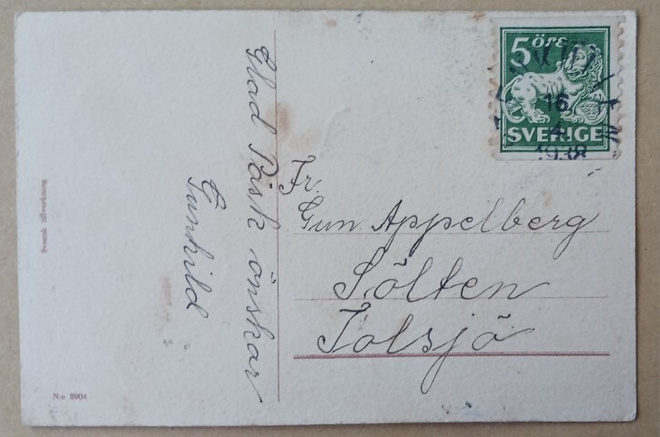 Glad Påsk önskar
Gunhild
Fr.
Gun Appelberg
Sölten
Tolsjö
5 ÖRE
SVERIGE
16
4
1938
Svensk tillverkning
N:o 8904